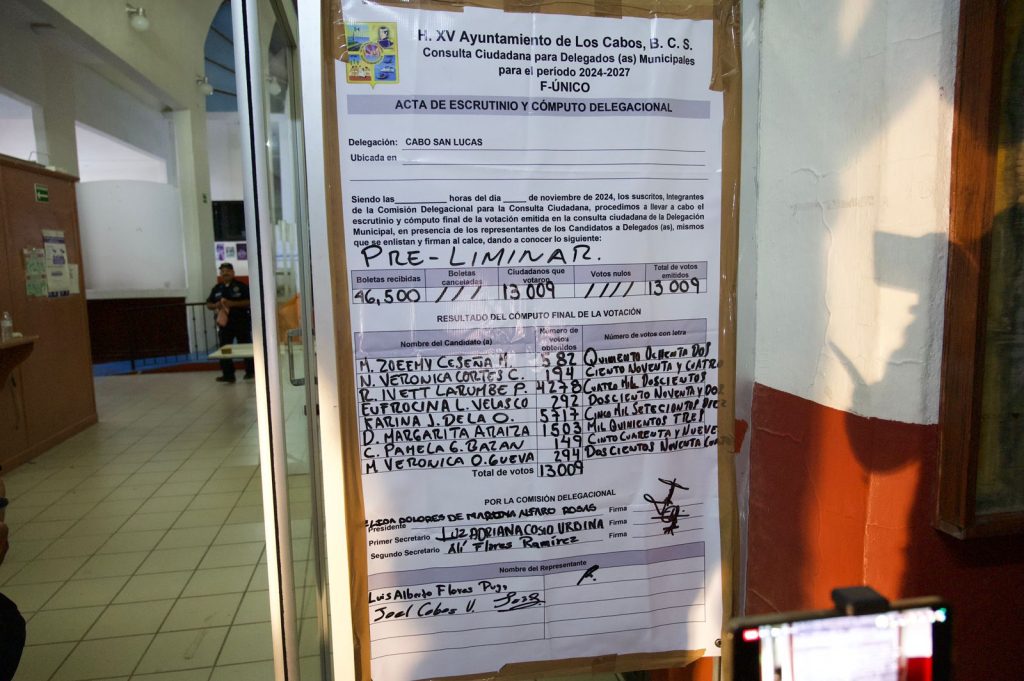 H. XV Ayuntamiento de Los Cabos, B. C. S.
Consulta Ciudadana para Delegados (as) Municipales
para el período 2024-2027
F-ÚNICO
ACTA DE ESCRUTINIO Y CÓMPUTO DELEGACIONAL
Delegación: CABO SAN LUCAS
Ubicada en
Siendo las horas del día de noviembre de 2024, los suscritos, Integrantes
de la Comisión Delegacional para la Consulta Ciudadana, procedimos a llevar a cabo el
escrutinio y cómputo final de la votación emitida en la consulta ciudadana de la Delegación
Municipal, en presencia de los representantes de los Candidatos a Delegados (as), mismos
que se enlistan y firman al calce, dando a conocer lo siguiente:
PRE-LIMINAR.
Boletas recibidas Boletas canceladas Ciudadanos que votaron Votos nulos Total de votos emitidos
46,500 /// 13 009 //// 13 009
RESULTADO DEL CÓMPUTO FINAL DE LA VOTACIÓN
Nombre del Candidato (a) Número de votos obtenidos Número de votos con letra
M. ZOEEMY CESEÑA M 582 QUIMENTO OCHENTA DOS
N. VERONICA CORTES C. 194 CIENTO NOVENTA Y CUATRO
R. IVETT LARUMBE P. 4278 CUATRO MIL DOSCIENTOS
EUFROCINA L. VELASCO 292 DOSCIENTO NOVENTA Y DOS
KARINA J. DE LA O. 5717 CINCO MIL SETECIONTOS DIEZ
D. MARGARITA ARAIZA 1503 MIL QUINIENTOS TRES
C. PAMELA G. BAZAN 149 CINTO CUARENTA Y NUEVE
M VERONICA O. GUEVA 294 DOSCIENTOS NOVENTA
Total de votos 13009
POR LA COMISIÓN DELEGACIONAL
Presidente DOLORES DE MARDINA ALFARO ROSAS Firma
Primer Secretario LUZ ADRIANA COSIO URDINA Firma
Segundo Secretario Alí Flores Ramírez Firma
Nombre del Representante
Luis Alberto Flores Puga
Joel Cobos V.